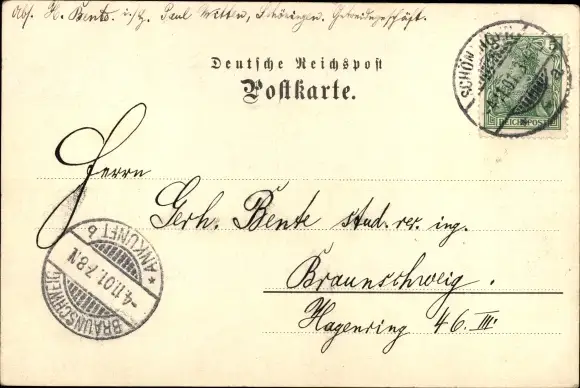 Abs. H. Bente. i/H. Paul Witten, Schöningen. Getreidegeschäft.
Deutsche Reichspost
Postkarte.
SCHÖNINGEN
-4.11.01
a
REICHSPOST
Herrn
Gerh. Bente stud. rer. ing.
Braunschweig.
Hagenring 46. III.
BRAUNSCHWEIG
-4.11.01.7-8.N.
* ANKUNFT b